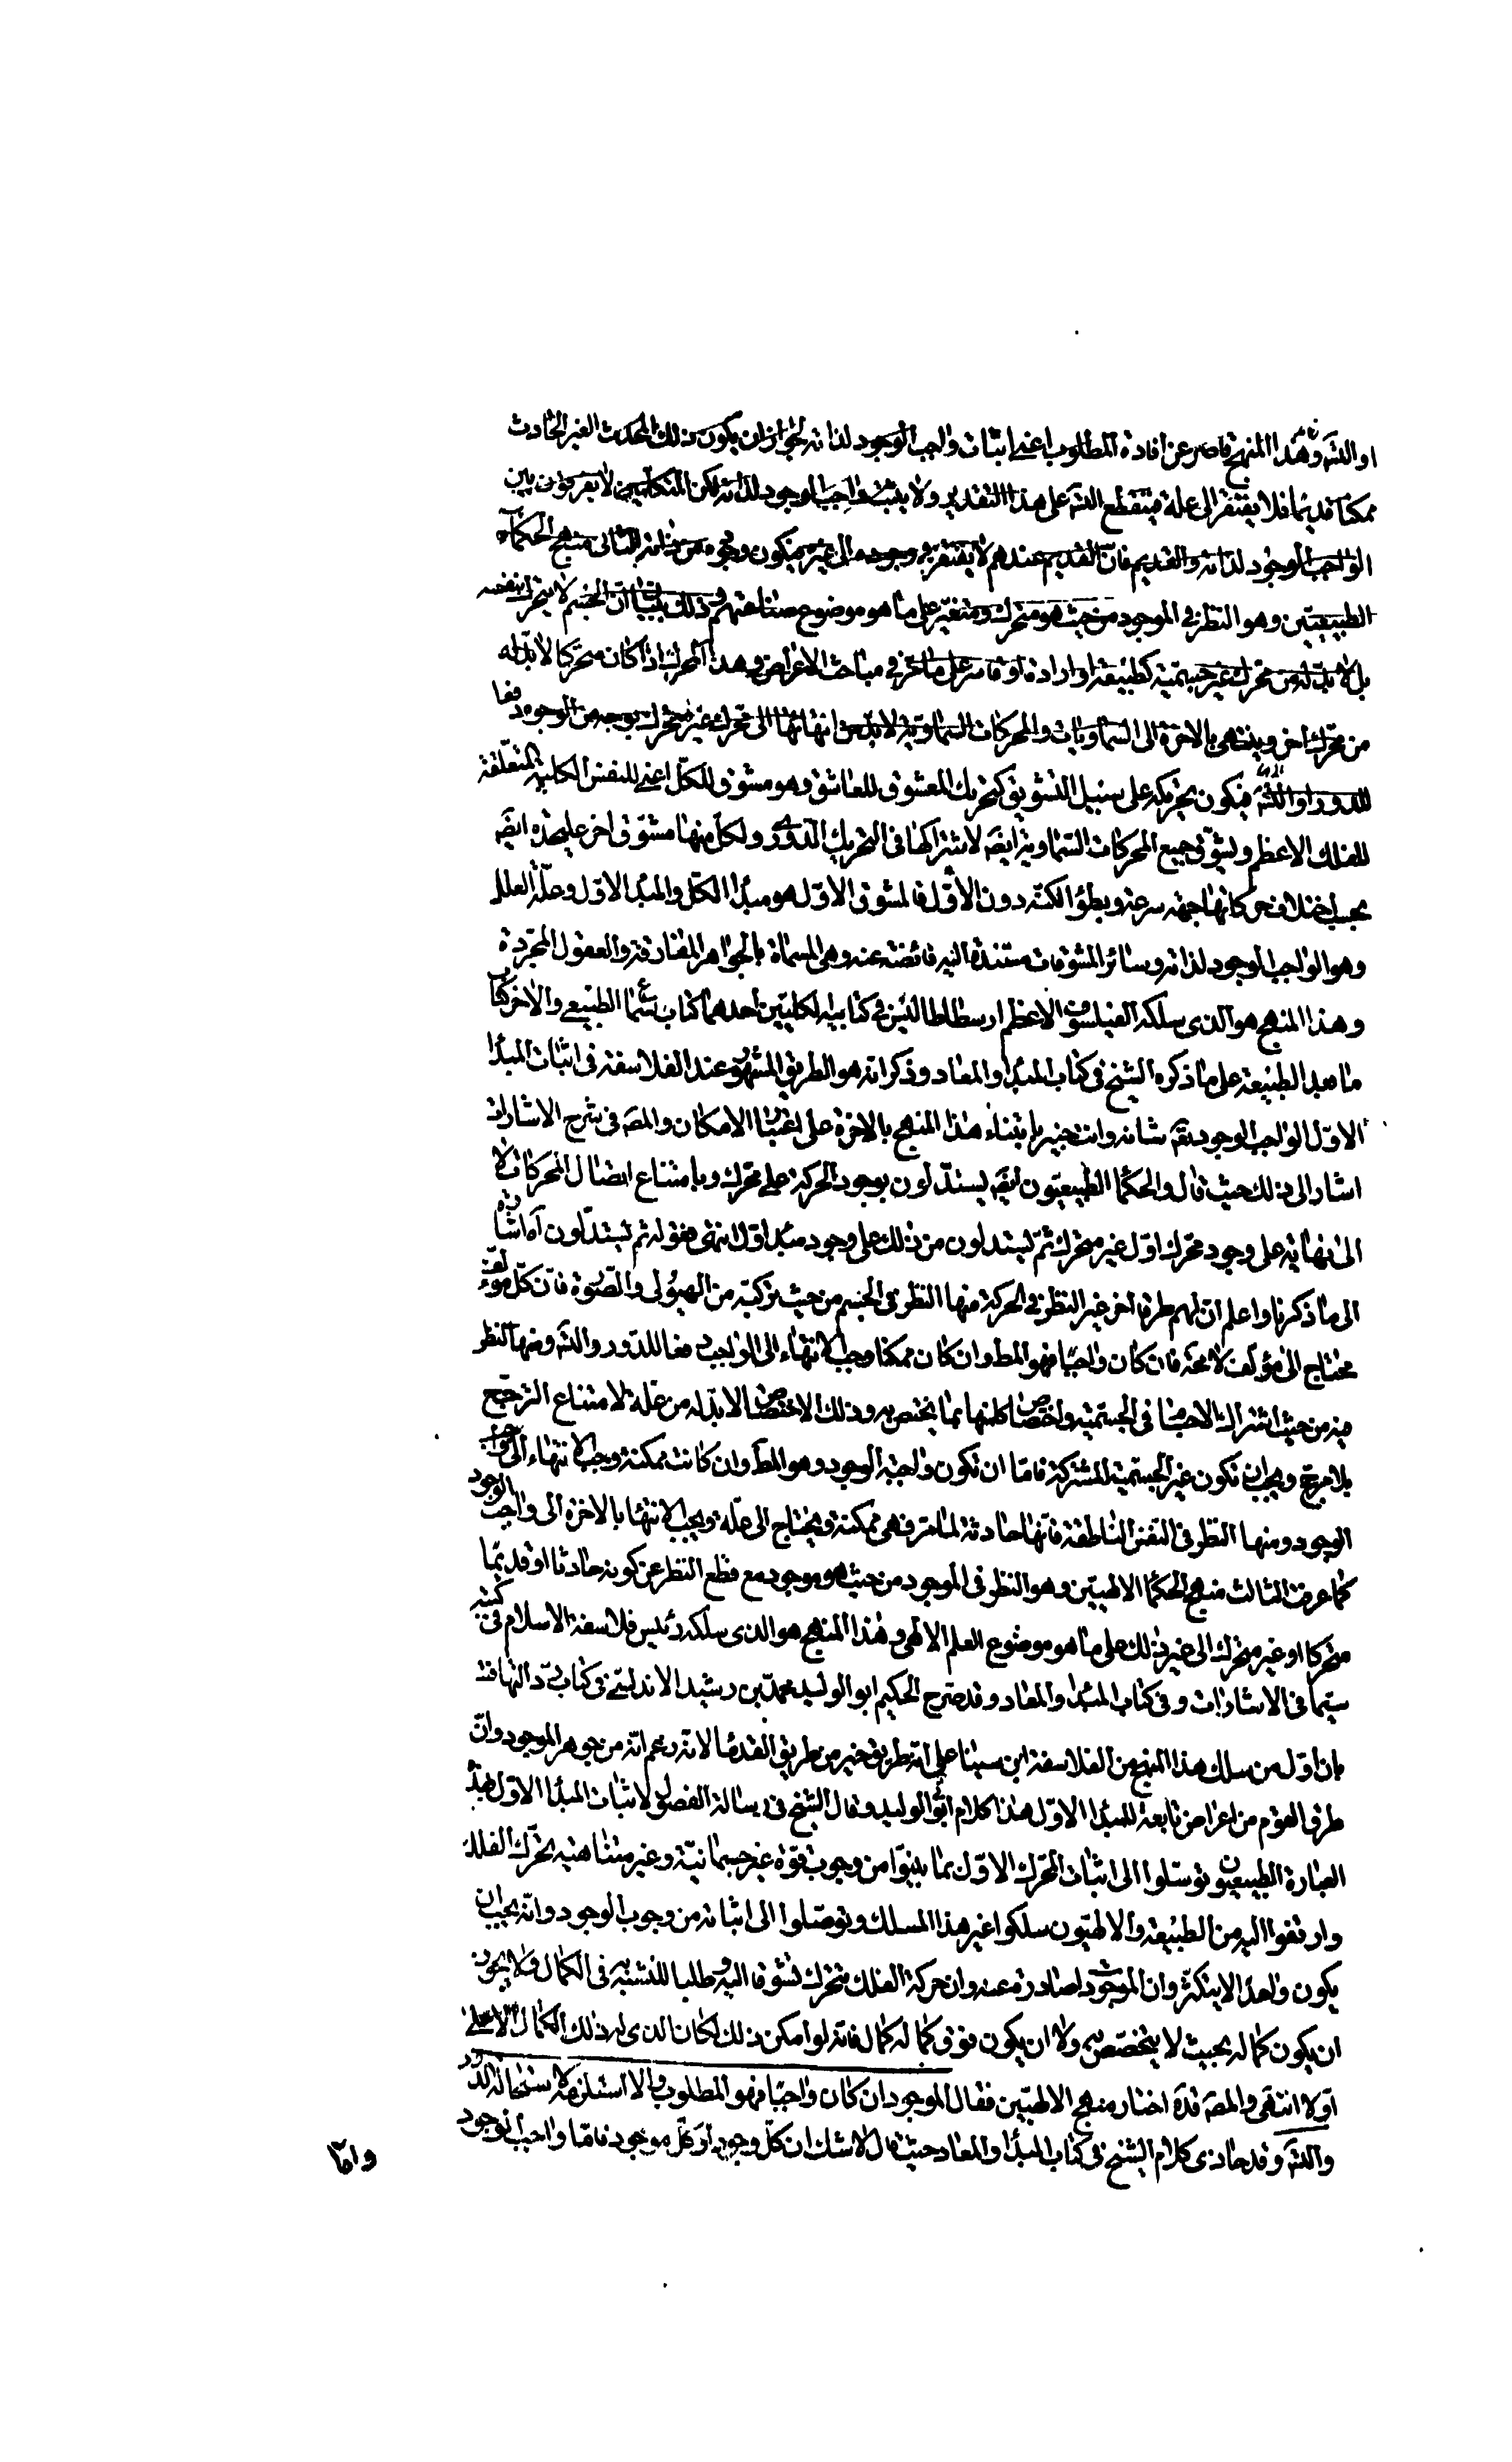 او التسّ وهذا المنهج قاصر عن افادة المطلوب اعنى اثبات واجب الوجود لذاته لجواز ان يكون ذلك المحدث الغير الحادث
ممكنا قديما فلا يفتقر الى علة فينقطع التسّ على هذا التقدير ولا يثبت واجب الوجود لذاته لكن المتكلمين لا يفرقون بين
الواجب الوجود لذاته والقديم فانّ القديم عندهم لا يفتقر فى وجوده الى غيره فيكون وجوده من ذاته الثانى منهج الحكماء
الطبيعيّين وهو النظر فى الموجود من حيث هو متحرك ومتغيّر على ما هو موضوع صناعتهم وذلك ببيان انّ الجسم لا يتحرك بنفسه
بل لا بدّ له من محرك غير جسميّة كطبيعة او ارادة او قاسر على ما مرّ فى مباحث الاعراض وهذا المحرك اذا كان متحركا لا بدّ له
من محرّك اخر وينتهى بالاخرة الى السّماويات والمحركات السّماوية لا بدّ من انتهائها الى محرّك غير متحرك بوجه من الوجوه دفعا
للدور او التسّ فيكون تحريكه على سبيل التشويق كتحريك المعشوق للعاشق وهو مشوق للكلّ اعنى للنفس الكلية المتعلّقة
للفلك الاعظم ويشوّق جميع المحركات السّماوية ايضَ لاشتراكها فى التحريك الدّورى ولكلّ منها مشوّق اخر عليحدة ايضَ
بحسب اختلاف حركاتها جهة سرعة وبطؤا لكنّه دون الأوّل فالمشوق الاوّل هو مبدأ الكلّ والمبدا الاوّل وعلّة العلل
وهو الواجب الوجود لذاته وسائر المشوقات مستندة اليه فائضة عنه وهى المسماة بالجواهر المفارقة والعقول المجرّدة
وهذا المنهج هو الذى سلكه الفيلسوف الاعظم ارسطاطاليس فى كتابيه الكليّين احدهما كتاب سماع الطبيعى والاخر كتاب
ما بعد الطبيعة على ما ذكره الشيخ فى كتاب المبدأ والمعاد وذكر انه هو الطريق المشهور عند الفلاسفة فى اثبات المبدا
الاوّل الواجب الوجود تعَ شانه وانت خبير بابتناء هذا المنهج بالاخرة على اعتبار الامكان والمصَ فى شرح الاشارات
اشار الى ذلك حيث قال والحكما الطّبيعيّون ايضَ يستدّلون بوجود الحركة على محرّك وبامتناع اتصال المحركات لا
الى نهاية على وجود محرّك اوّل غير متحرك ثمّ يستدلون من ذلك على وجود مبدا اوّل انتهى فقوله ثم يستدّلون آه اشارة
الى ما ذكرنا واعلم انّ لهم طرقا اخر غير النظر فى الحركة منها النظر فى الجسم من حيث تركبّه من الهيولى والصّورة فانّ كلّ مؤلّف
محتاج الى مؤلّف لا محَة فان كان واجبًا فهو المط وان كان ممكنا وجب الانتهاء الى الواجب دفعا للدّور والتسّ ومنها النظر
فيه من حيث اشتراك الاجسام فى الجسميّة واختصاص كل منها بما يختص به وذلك الاختصاص لا بدّ له من علّة لامتناع الترجّح
بلا مرجّح ويجب ان تكون غير الجسميّة المشتركة فامّا ان تكون واجبة الوجود وهو المط وان كانت ممكنة وجب الانتهاء الى واجب
الوجود ومنها النظر فى النفس الناطقة فانّها حادثة لما مرّ فهى ممكنة ويحتاج الى علّة ويجب الانتهاء بالاخرة الى واجب الوجود
كما عرفت الثالث منهج الحكما الالهيّين وهو النظر فى الموجود من حيث هو موجود مع قطع النظر عن كونه حادثا او قديمًا
متحركا او غير متحرك الى غير ذلك على ما هو موضوع العلم الالهى وهذا المنهج هو الذى سلكه رئيس فلاسفة الاسلام فى كتبه
سيّما فى الاشارات وفى كتاب المبدا والمعاد وقد صرّح الحكيم ابو الوليد محمّد بن رشيد الاندلسى فى كتاب ردّ التهافت
بان اوّل من سلك هذا المنهج من الفلاسفة ابن سينا على انّه طريق خير من طريق القدما لانّه زعم انّه من جوهر الموجود وانّ
طرق القوم من اعراض تابعة للمبدا الاوّل هذا كلام ابو الوليد وقال الشيخ فى رسالة الفصول لاثبات المبدا الاوّل بهذه
العبارة الطبيعيّون توسّلوا الى اثبات المحرّك الاوّل بما بيّنوا من وجوب قوّة غير جسمانيّة وغير متناهية يحرّك الفلك
وارتقوا اليه من الطبيعة والالهيّون سلكوا غير هذا المسلك وتوصّلوا الى اثباته من وجوب الوجود وانّه يجب ان
يكون واحدا لا يتكثّر وان الموجودات صادرة عنه وان حركة الفلك متحرك تشوقا اليه وطلبا للتشبّه به فى الكمال ولا يجوز
ان يكون كماله بحيث لا يتخصّص به ولا ان يكون فوق كماله كمال فانّه لو امكن ذلك لكان الذى له ذلك الكمال الاعلى
اوّلا انتهى والمصَ قدّه اختار منهج الالهيّين فقال الموجود ان كان واجبًا فهو المطلوب والا استلزمه لاستحالة الدّور
والتسّ وقد حاذى كلام الشيخ فى كتاب المبدأ والمعاد حيث قال لا شك ان كلّ وجود او كلّ موجود فامّا واجب الوجود
وامّا